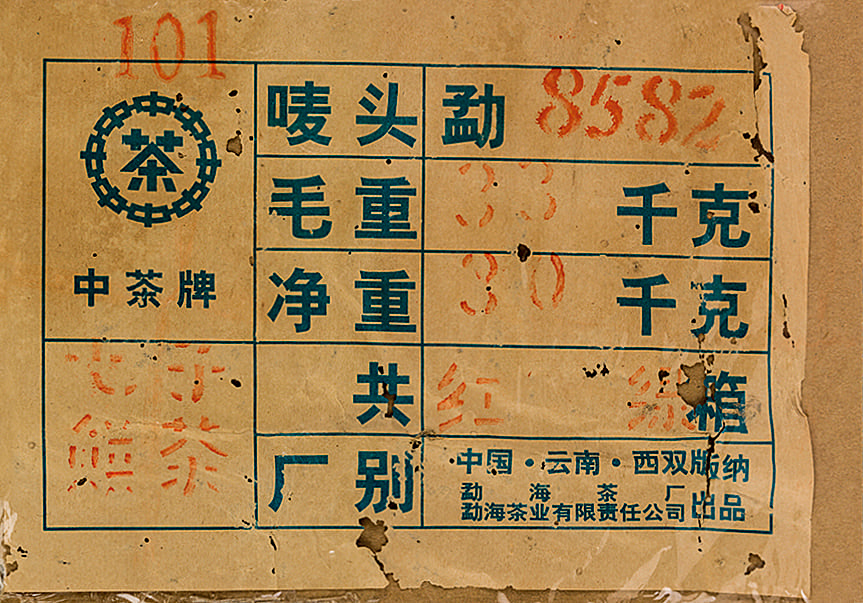 101
茶
中茶牌
唛头 勐 8582
毛重 33 千克
净重 30 千克
七子
饼茶
共 红 箱
厂别
中国·云南·西双版纳
勐海茶厂
勐海茶业有限责任公司 出品